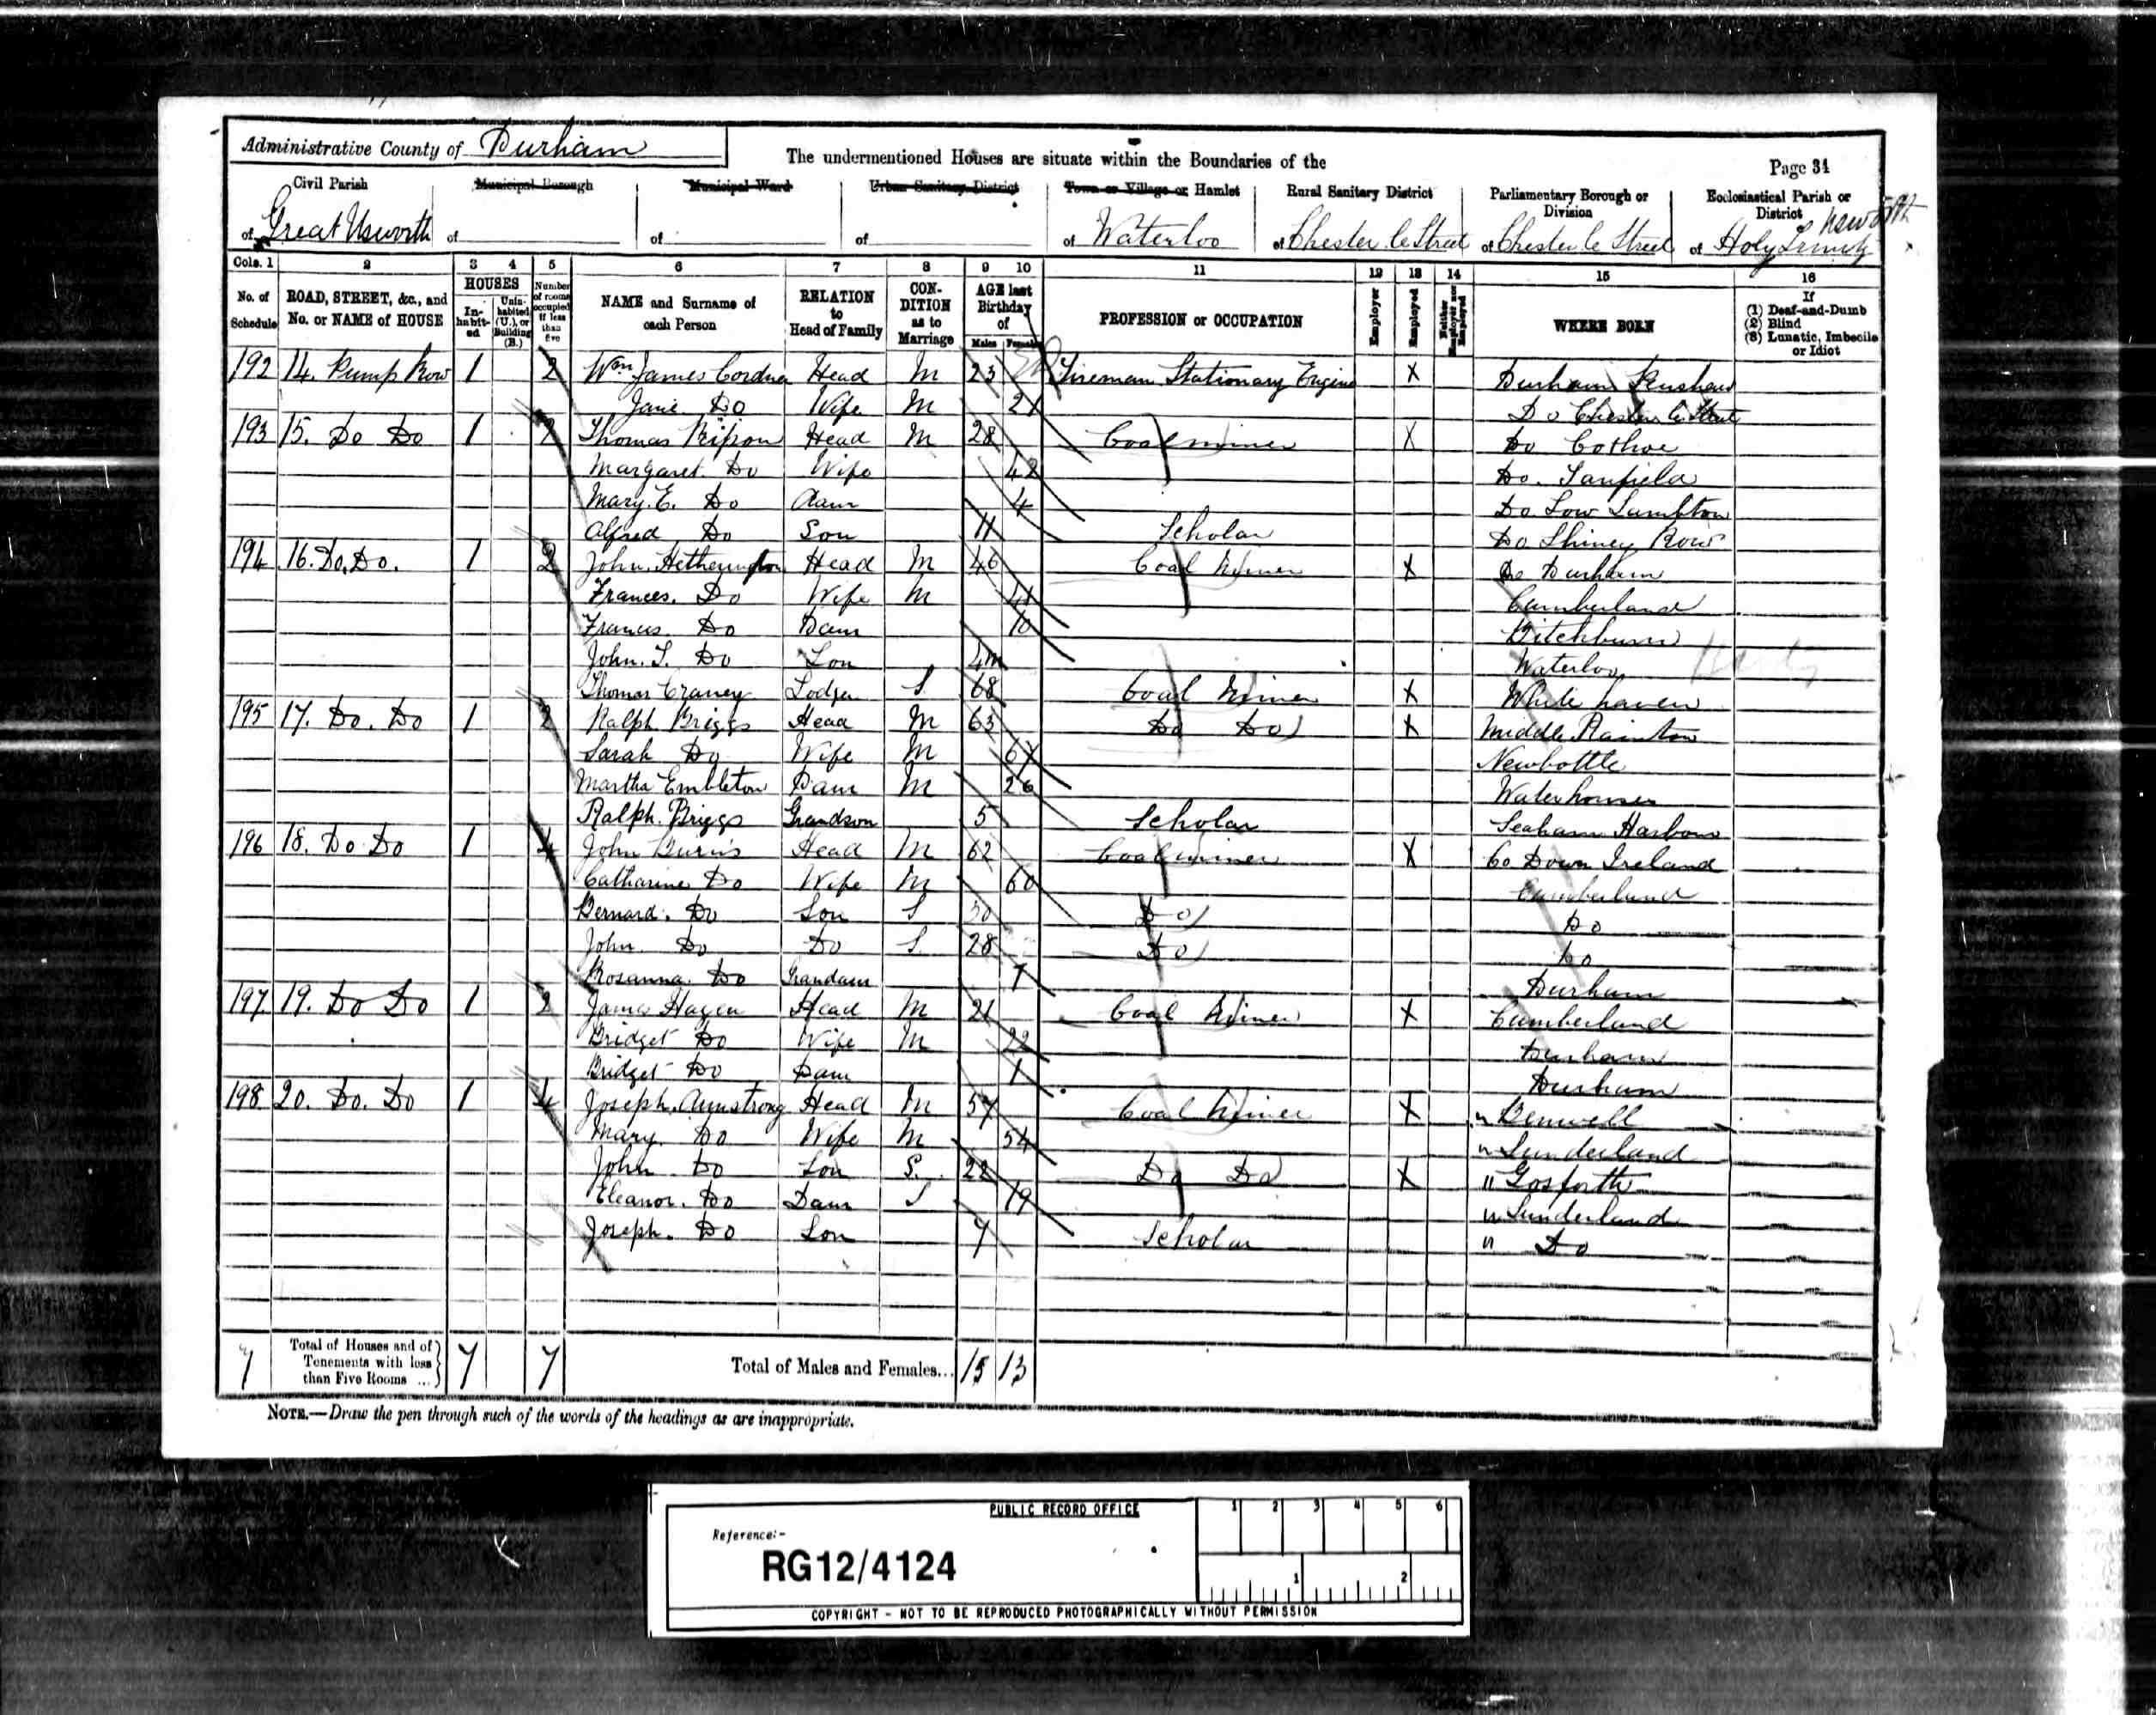 Administrative County of Durham
The undermentioned Houses are situate within the Boundaries of the
Page 34
Civil Parish of Great Usworth
Municipal Borough of
Municipal Ward of
Urban Sanitary District of
Town or Village or Hamlet of Waterloo
Rural Sanitary District of Chester le Street
Parliamentary Borough or Division of Chester le Street
Ecclesiastical Parish or District of Holy Trinity Usworth
Cols. 1 2 3 4 5 6 7 8 9 10 11 12 13 14 15 16
No. of Schedule
ROAD, STREET, &c., and No. or NAME of HOUSE
HOUSES
Inhabited
Uninhabited (U.), or Building (B.)
Number of rooms occupied if less than five
NAME and Surname of each Person
RELATION to Head of Family
CONDITION as to Marriage
AGE last Birthday of
Males Females
PROFESSION or OCCUPATION
Employer
Employed
Neither Employer nor Employed
WHERE BORN
If (1) Deaf-and-Dumb (2) Blind (3) Lunatic, Imbecile or Idiot
192 14. Pump Row 1 2 Wm James Cordner Head M 23 Fireman Stationary Engine X Durham
Jane Do Wife M 21 Do Chester le Street
193 15. Do Do 1 Thomas Head M 28 Coal miner X Do
Margaret Do Wife 42 Do. Tanfield
Mary. E. Do Daur 4 Do Low Lambton
Alfred Do Son 11 Scholar Do Shiney Row
194 16. Do. Do. 1 2 John Hetherington Head M 46 Coal Miner X Do Durham
Frances. Do Wife M Cumberland
Frances. Do Daur 10
John. T. Do Son 4m Waterloo
Thomas Craney Lodger S 68 Coal Miner X White haven
195 17. Do. Do 1 2 Ralph Briggs Head M 63 Do Do X Middle Rainton
Sarah Do Wife M 67 Newbottle
Martha Embleton Daur M 26 Waterhouses
Ralph. Briggs Grandson 5 Scholar Seaham Harbour
196 18. Do Do 1 4 John Burns Head M 62 Coal miner X Co Down Ireland
Catharine Do Wife M 60 Cumberland
Bernard. Do Son S 30 Do Do
John Do Do S. 28 Do Do
Rosanna. Do Grandaur 7 Durham
197. 19. Do Do 1 2 James Hagen Head M 21 Coal Miner X Cumberland
Bridget Do Wife M 22 Durham
Bridget Do Daur 1 Durham
198. 20. Do. Do 1 4 Joseph. Armstrong Head M 57 Coal Miner X " Benwell
Mary. Do Wife M 54 " Sunderland
John Do Son S. 22 Do Do X " Gosforth
Eleanor. Do Daur S 19 " Sunderland
Joseph. Do Son 7 Scholar " Do
7 Total of Houses and of Tenements with less than Five Rooms ... 7 7 Total of Males and Females... 15 13
NOTE.—Draw the pen through such of the words of the headings as are inappropriate.
PUBLIC RECORD OFFICE
1 2 3 4 5 6
Reference:-
RG12/4124
1 2
COPYRIGHT - NOT TO BE REPRODUCED PHOTOGRAPHICALLY WITHOUT PERMISSION